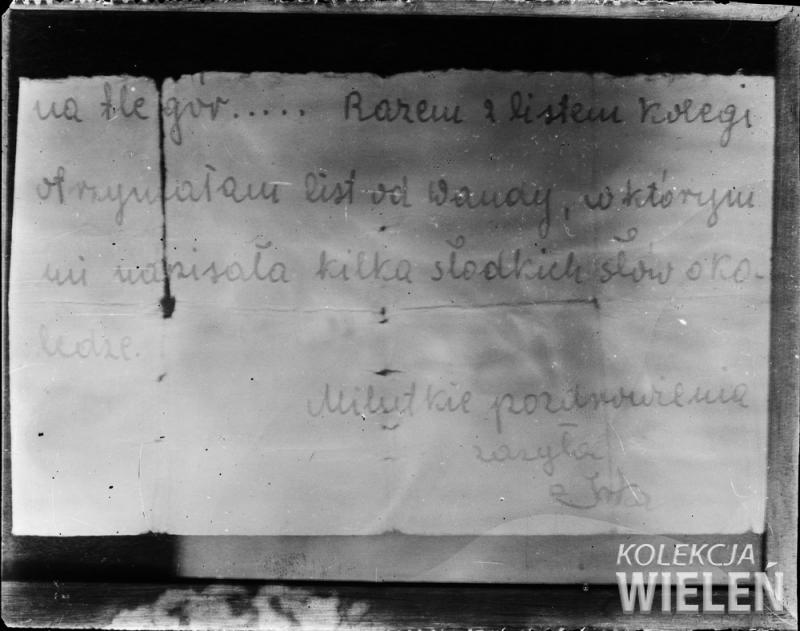 na tle gór..... Razem z listem kolegi
otrzymałam list od Wandy, w którym
mi napisała kilka słodkich słów o ko-
ledze.
Milutkie pozdrowienia
zasyła
KOLEKCJA
WIELEŃ